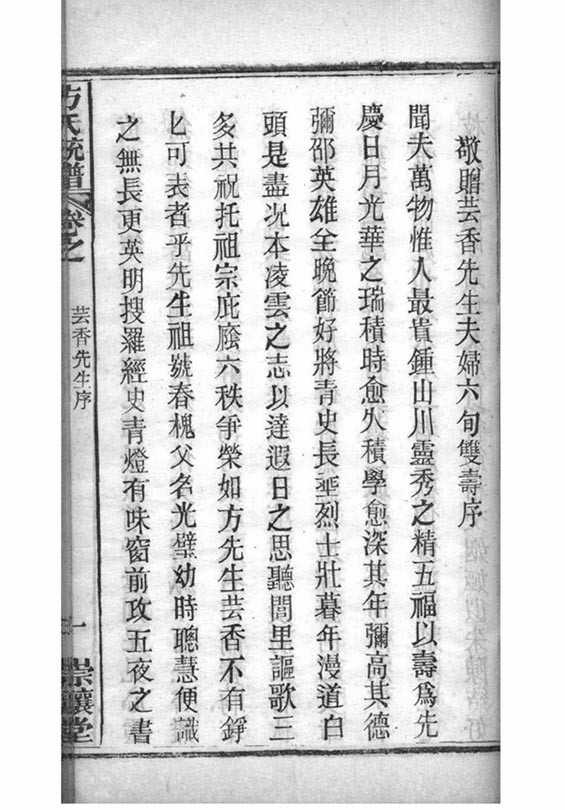 敬贈芸香先生夫婦六旬雙壽序
聞夫萬物惟人最貴鍾山川靈秀之精五福以壽爲先
慶日月光華之瑞積時愈久積學愈深其年彌高其德
彌邵英雄全晚節好將青史長垂烈士壯暮年漫道白
頭是盡况本凌雲之志以達遐日之思聽閭里謳歌三
多共祝托祖宗庇廕六秩争榮如方先生芸香不有錚
匕可表者乎先生祖號春槐父名光璧幼時聰慧便識
之無長更英明搜羅經史青燈有味窗前攻五夜之書
方氏統譜 卷之
芸香先生序
一
崇讓堂